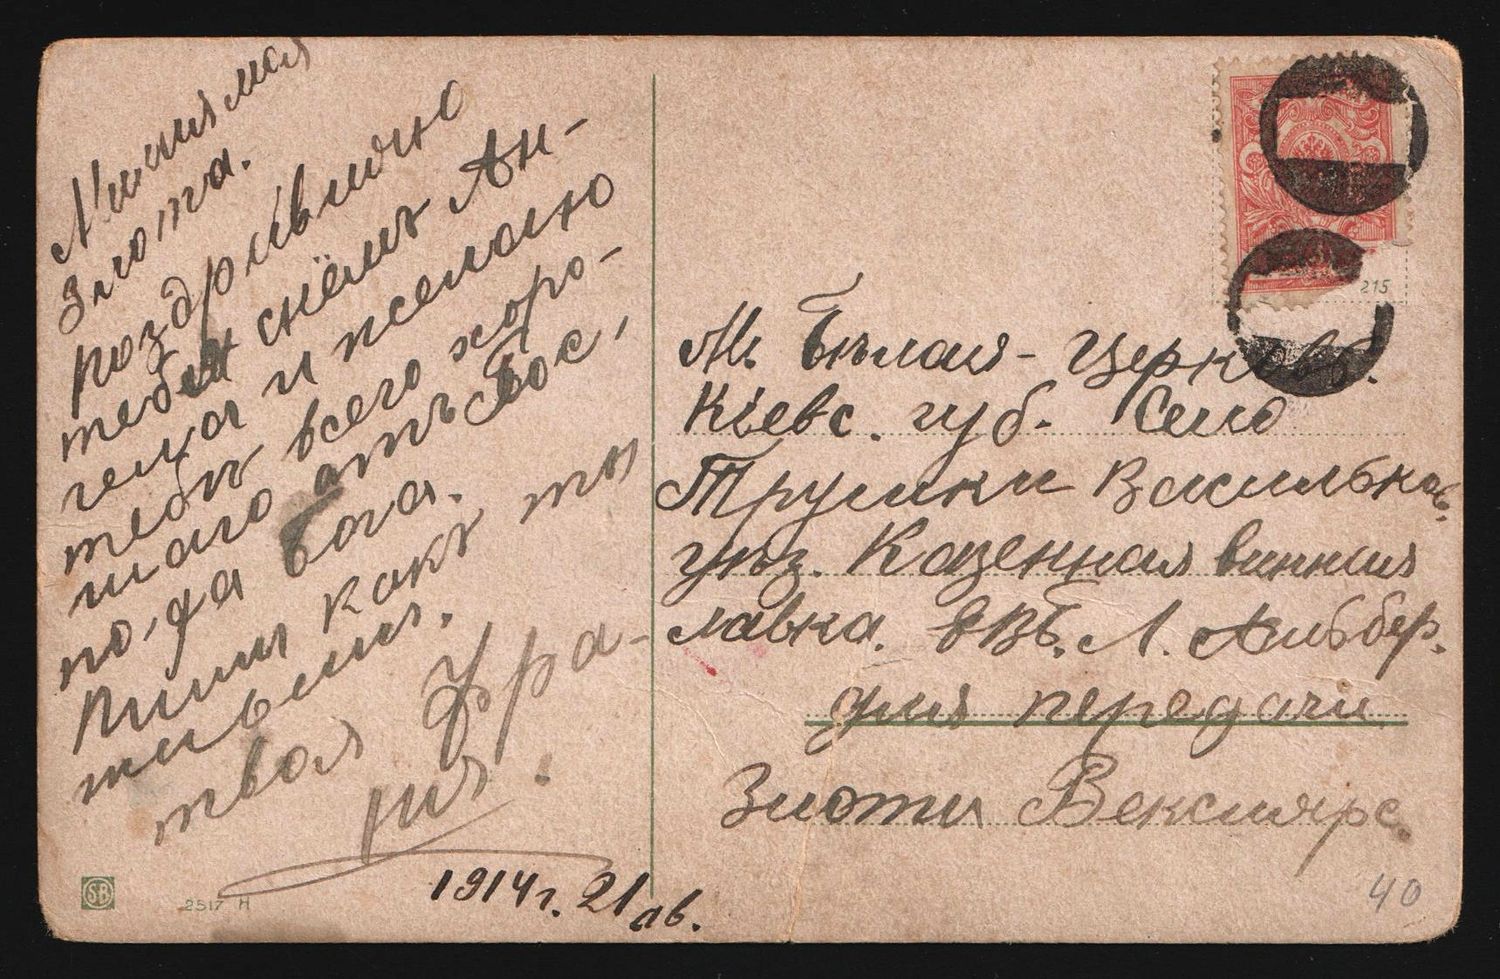 Милия моя
Злота.
поздравлию
тебя снёмъ Ан-
гела и желаию
тебѣ всего хоро-
шаго отъ Гос,
по,да Бога.
Пиши какъ ты
твоя Фра-
ния.
1914 г. 21 ав.
SB
2517 H
215
М. Бѣлая-Церковъ.
Кіевс. губ. Село
Трушки Васильков.
уѣз. Казенная винная
лавка. ЕВБ. Л. Альбер.
для передачи
Злоти Векслярс.
40